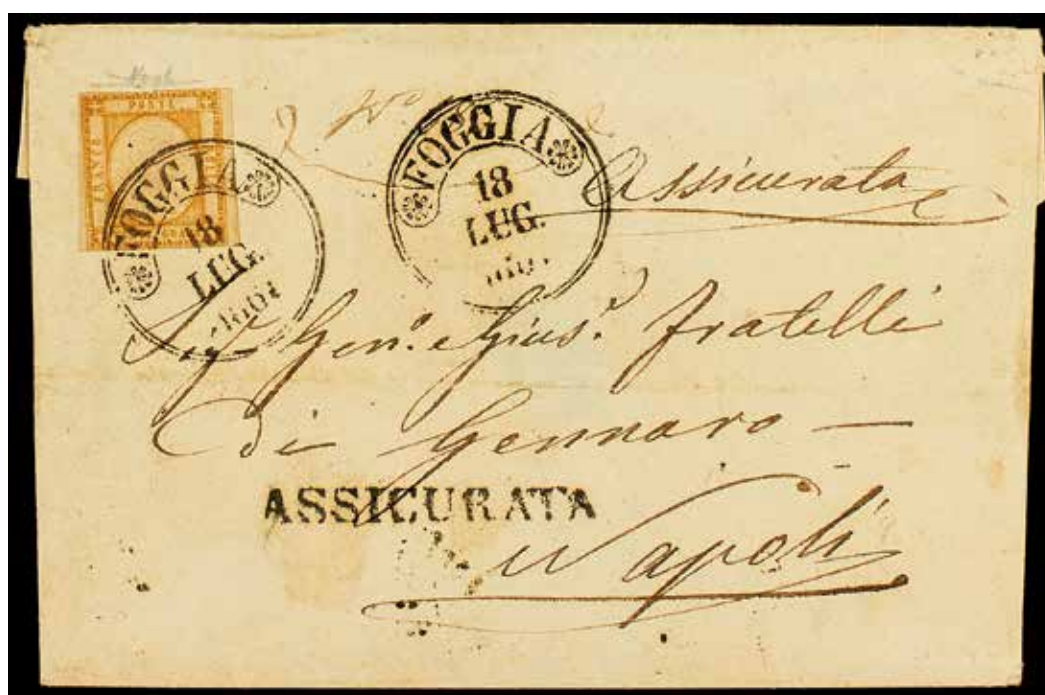 POSTE
FOGGIA
18
LUG.
FOGGIA
18
LUG.
1861
Assicurata
Sig.ⁱ Gen.º e Gius.e fratelli
di Gennaro —
ASSICURATA
Napoli